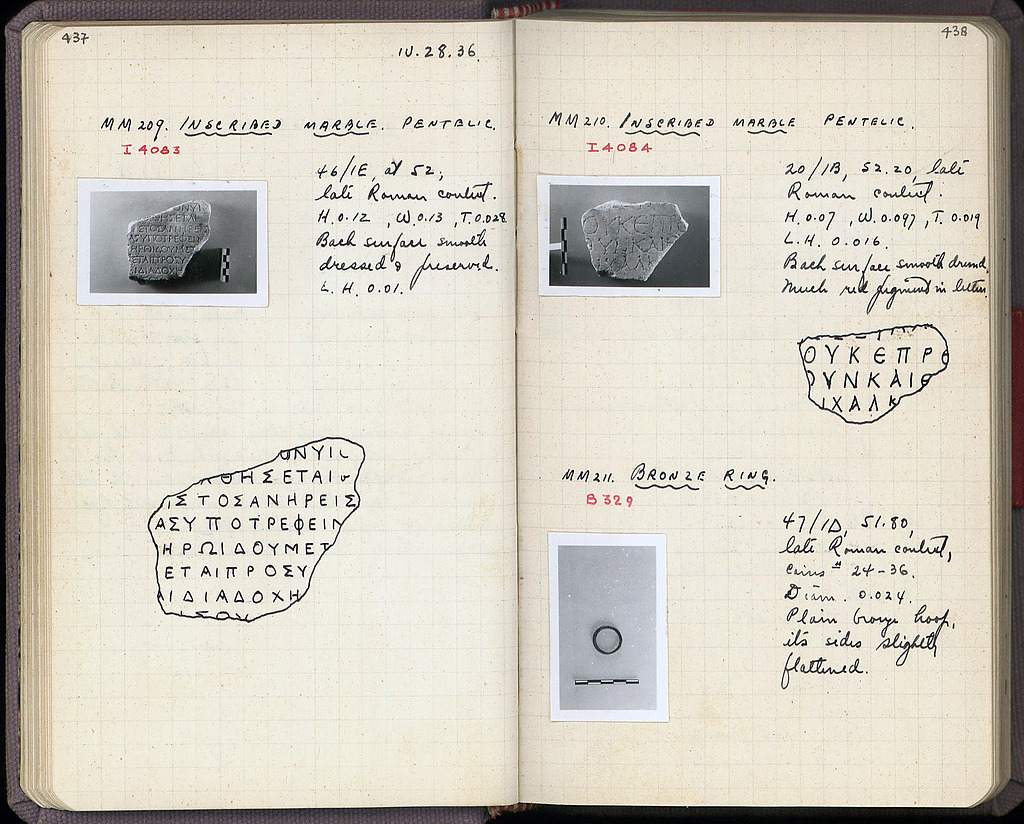 437
IV.28.36.
MM209. INSCRIBED MARBLE. PENTELIC.
I 4083
46/IE, at 52,
late Roman context.
H. 0.12, W. 0.13, T. 0.028
Back surface smooth
dressed & preserved.
L. H. 0.01.
ΟΝΥΙ
ΘΗΣΕΤΑΙ
ΙΣΤΟΣΑΝΗΡΕΙΣ
ΑΣΥΠΟΤΡΕΦΕΙΝ
ΗΡΩΙΔΟΥΜΕΤ
ΕΤΑΙΠΡΟΣΥ
ΑΙΔΙΑΔΟΧΗ
ΙΣΟΥ
438
MM210. INSCRIBED MARBLE PENTELIC.
I 4084
20/IB, 52.20, late
Roman context.
H. 0.07, W. 0.097, T. 0.019
L. H. 0.016.
Back surface smooth dressed.
Much red pigment in letters.
ΟΥΚΕΠΡΟ
ΟΥΝΚΑΙΕ
ΙΧΑΛΚ
MM211. BRONZE RING.
B 329
47/ID, 51.80,
late Roman context,
Coins # 24-36.
Diam. 0.024.
Plain bronze hoop,
its sides slightly
flattened.